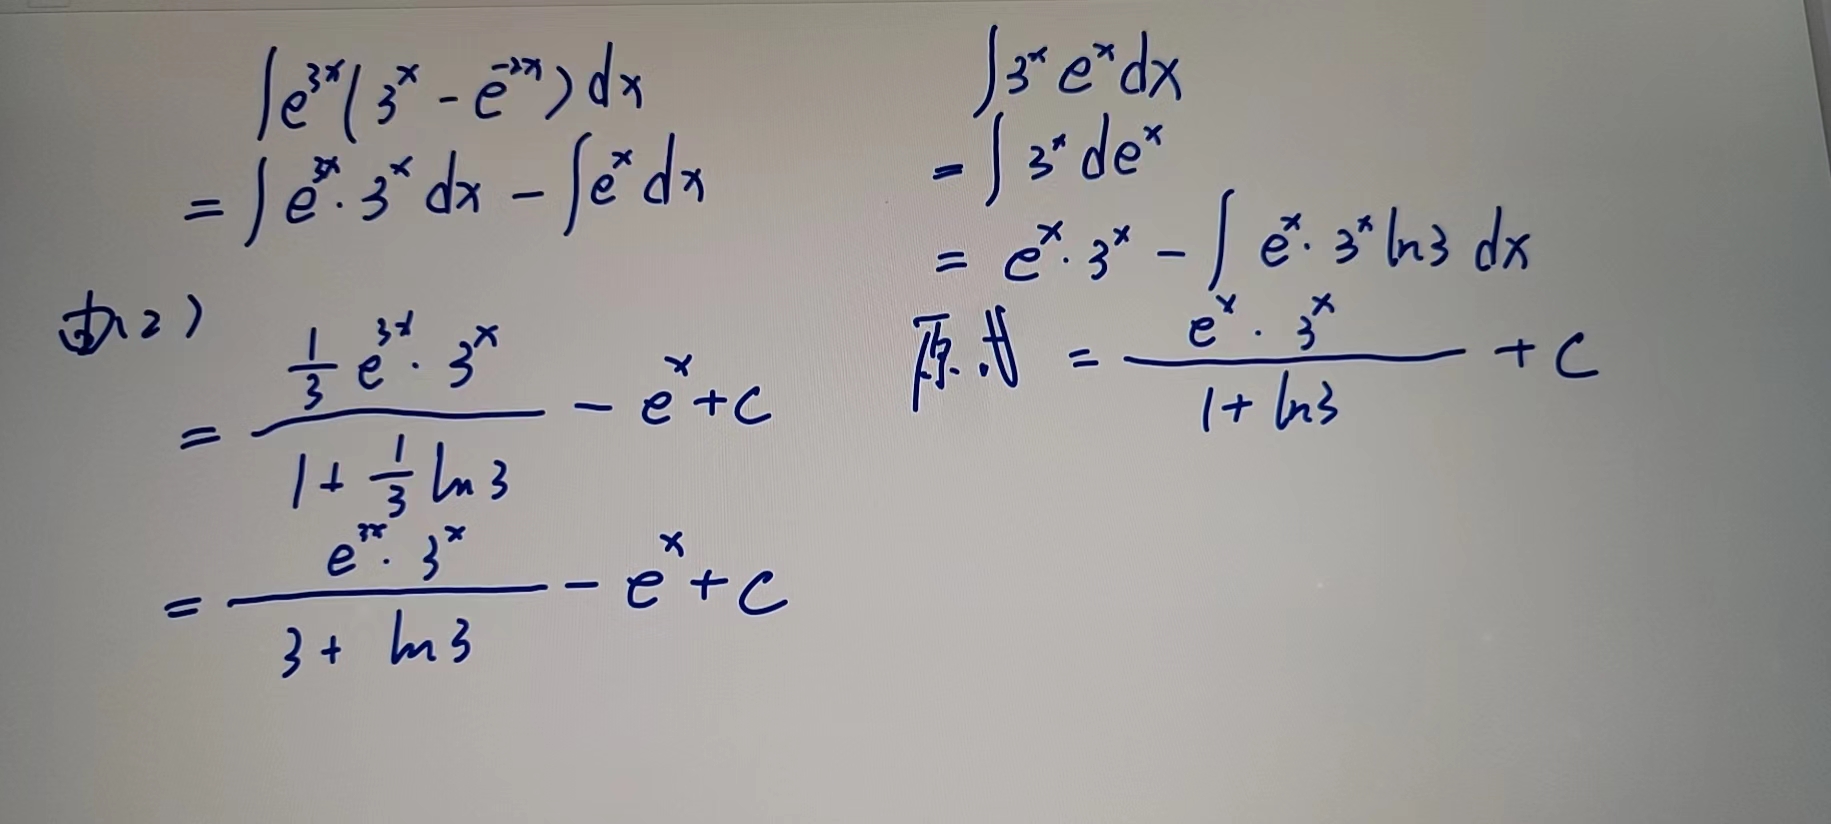 ∫e^{3x}(3^x - e^{-2x})dx
= ∫e^{3x}·3^x dx - ∫e^x dx
由(2)
= \frac{\frac{1}{3}e^{3x}·3^x}{1+\frac{1}{3}ln3} - e^x + C
= \frac{e^{3x}·3^x}{3+ln3} - e^x + C
∫3^x e^x dx
= ∫3^x de^x
= e^x·3^x - ∫e^x·3^x ln3 dx
原式 = \frac{e^x·3^x}{1+ln3} + C